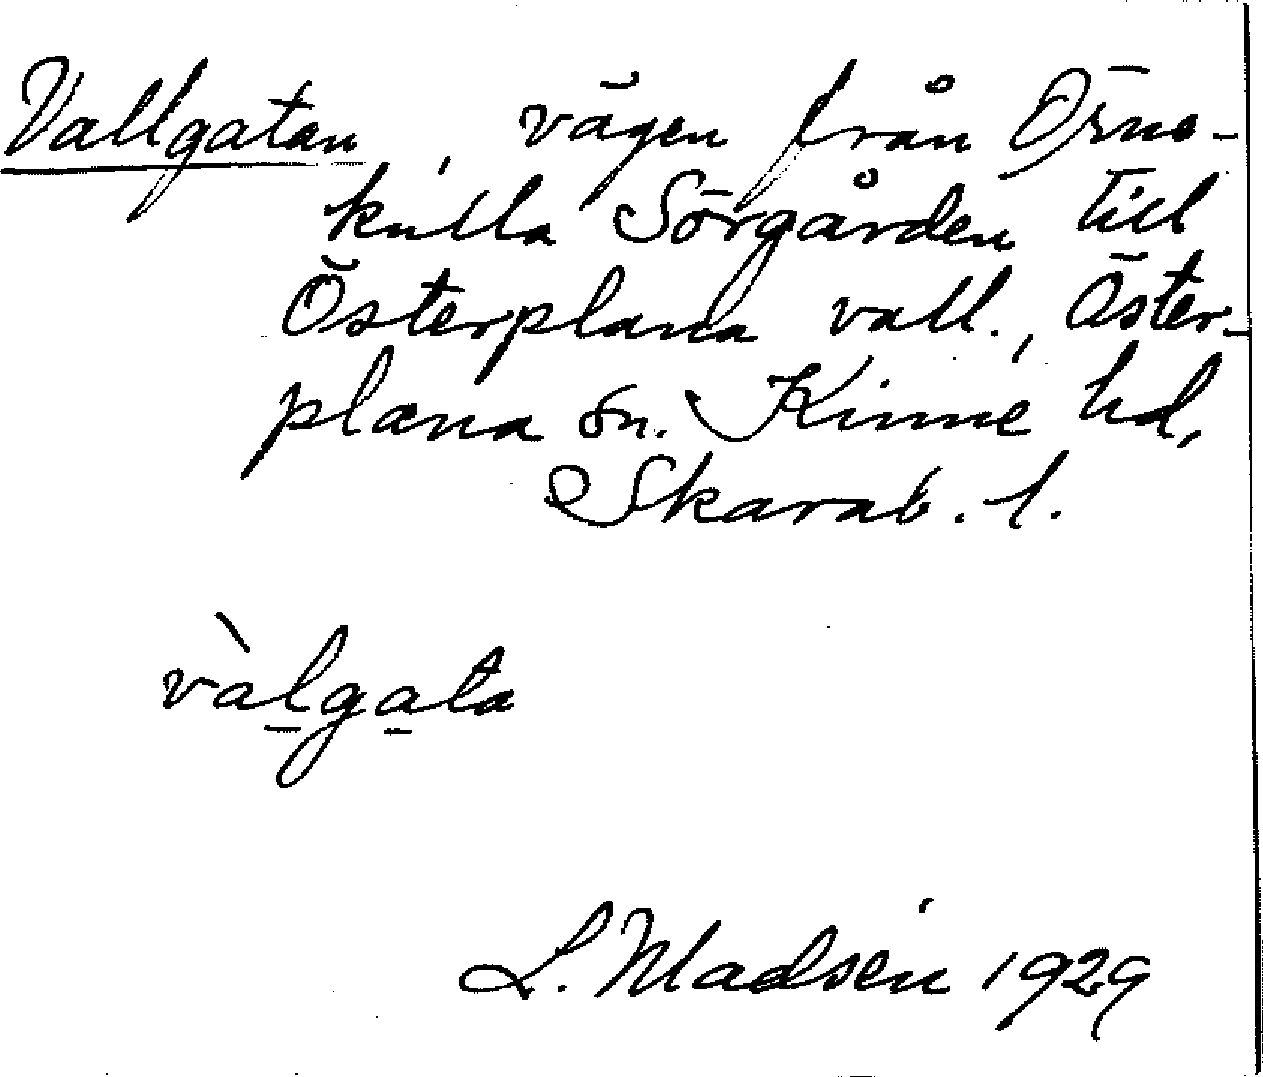 Vallgatan, vägen från Örne-
kulla Sörgården till
Österplana vall., Öster-
plana sn. Kinne hd,
Skarab. l.
vàlgata
L. Madsén 1929